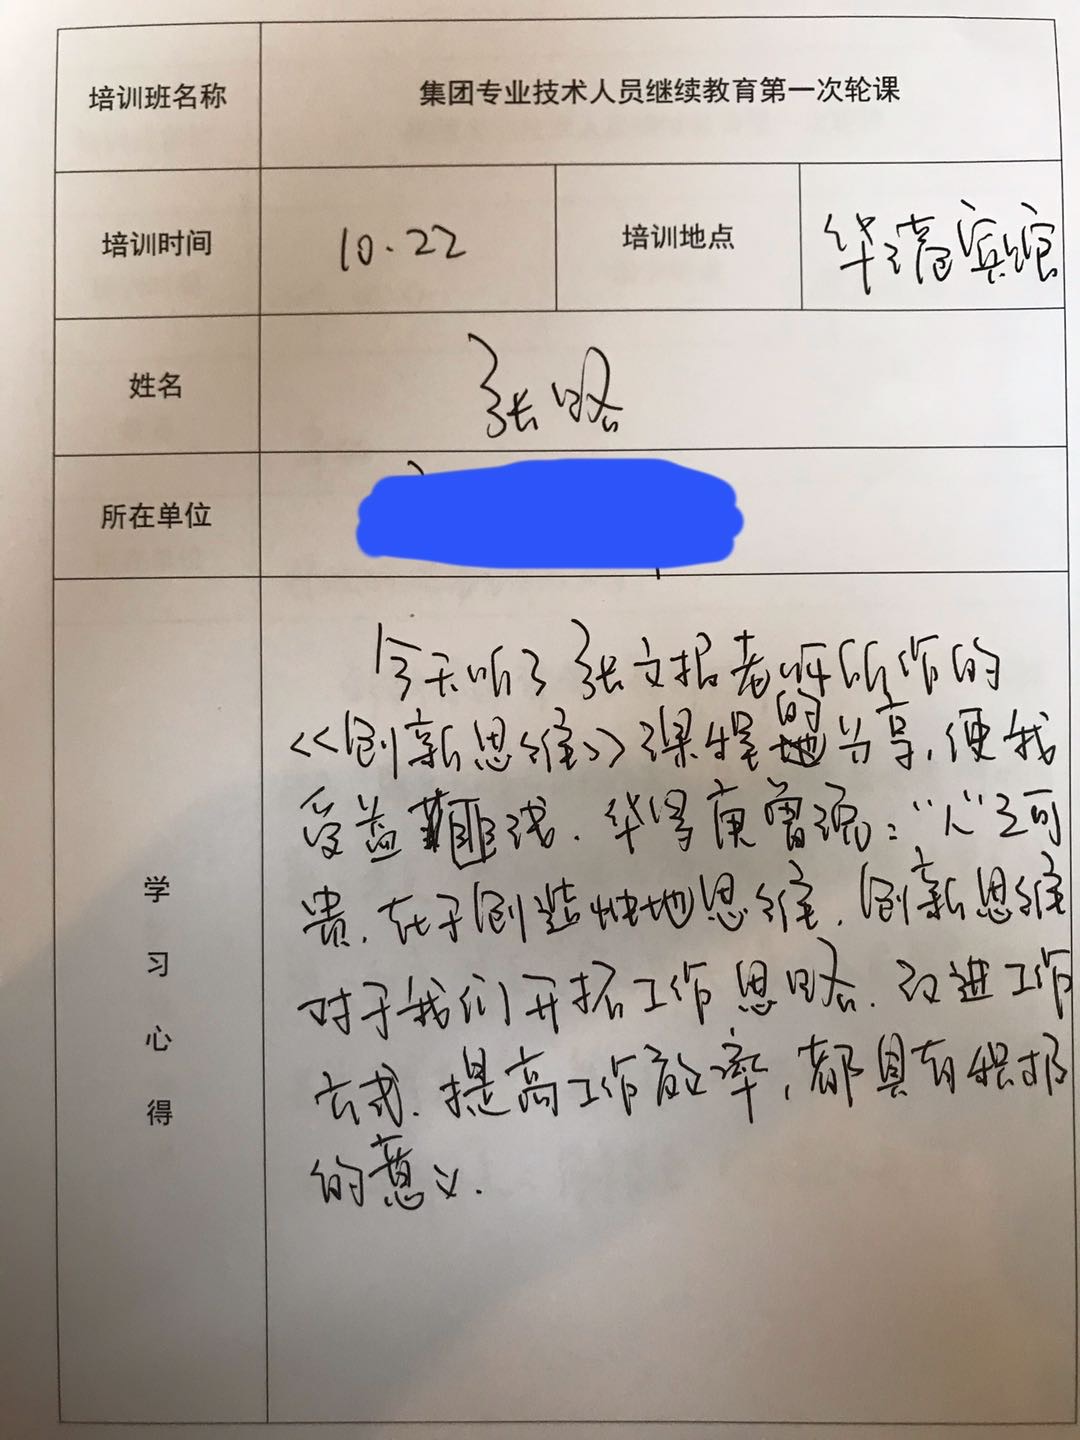 培训班名称 集团专业技术人员继续教育第一次轮课
培训时间 10.22 培训地点 华清宾馆
姓名 张略
所在单位
学习心得
今天听了张文报老师所作的
《创新思维》课程的分享,使我
受益匪浅.华罗庚曾说:“人”之可
贵.在于创造性地思维.创新思维
对于我们开拓工作思路.改进工作
方式.提高工作效率,都具有积极
的意义.